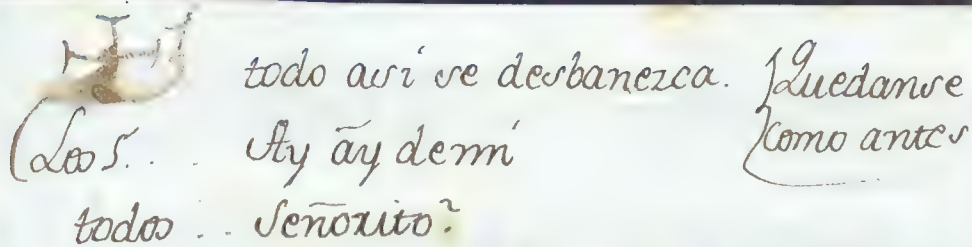 todo asi se desbanezca. Quedanse
como antes
Los 5.. Ay ãy demi
todos .. Señorito?